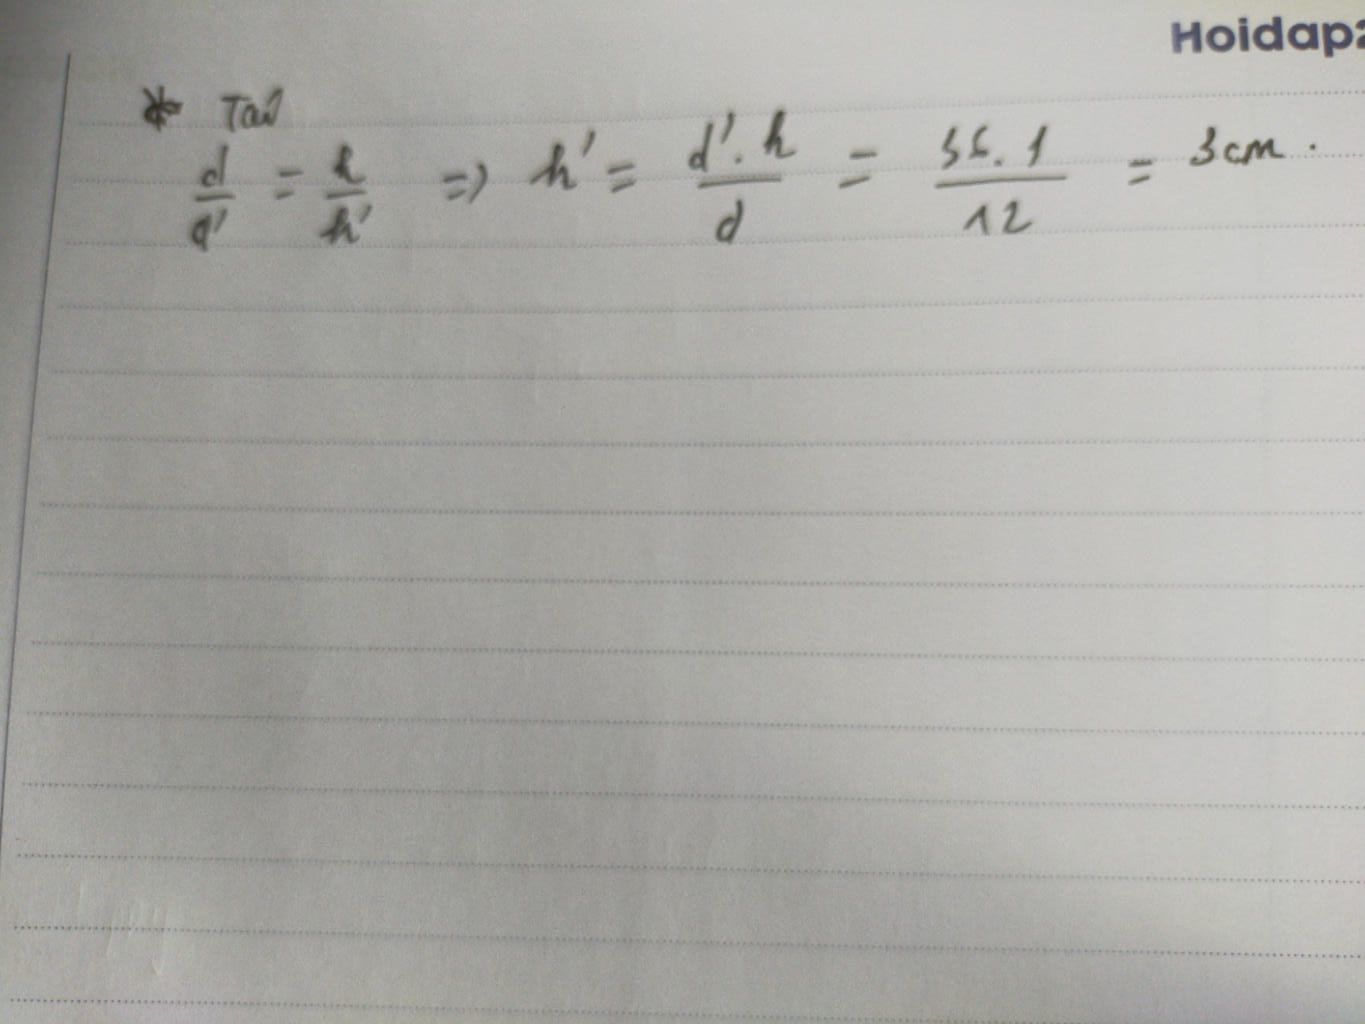 Hoidap2
* Ta có
d/d' = h/h' => h' = d'.h/d = 36.1/12 = 3cm.